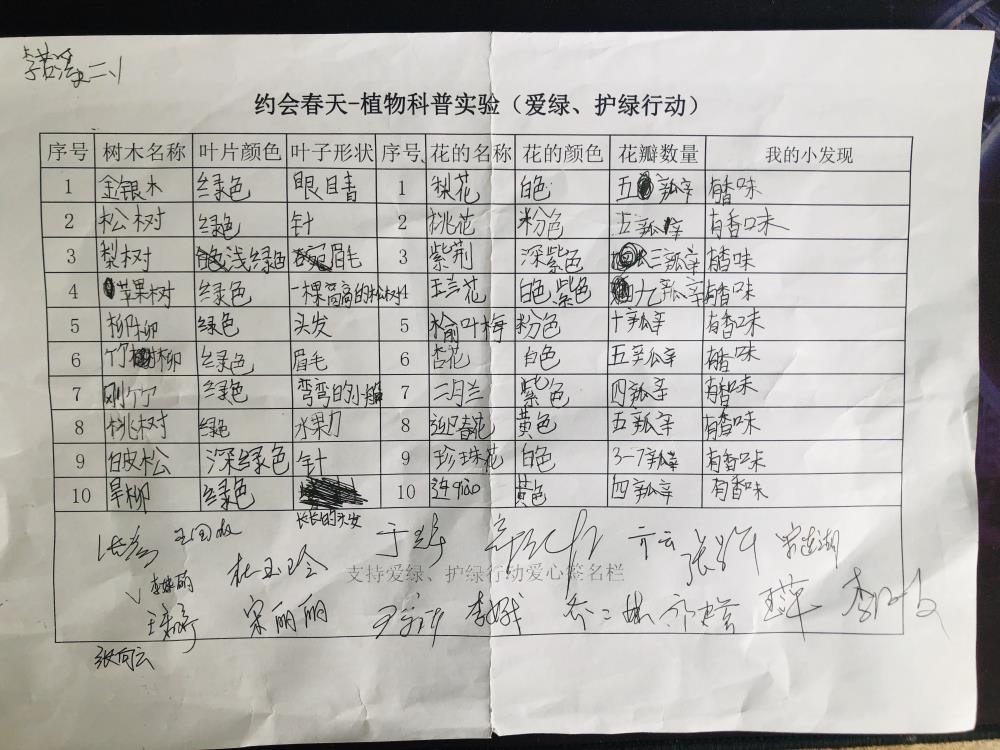 二、1
约会春天-植物科普实验（爱绿、护绿行动）
序号 树木名称 叶片颜色 叶子形状 序号 花的名称 花的颜色 花瓣数量 我的小发现
1 金银木 绿色 眼目青 1 梨花 白色 五瓣 有香味
2 松树 绿色 针 2 桃花 粉色 五瓣 有香味
3 梨树 浅绿色 眉毛 3 紫荆 深紫色 三瓣 有香味
4 苹果树 绿色 一棵高高的松树 4 玉兰花 白色 紫色 九瓣 有香味
5 柳 绿色 头发 5 榆叶梅 粉色 十瓣 有香味
6 竹柳 绿色 眉毛 6 杏花 白色 五瓣 有香味
7 刚竹 绿色 弯弯的小船 7 二月兰 紫色 四瓣 有香味
8 桃树 绿色 水果刀 8 迎春花 黄色 五瓣 有香味
9 白皮松 深绿色 针 9 珍珠花 白色 3-7瓣 有香味
10 旱柳 绿色 长长的头发 10 连翘 黄色 四瓣 有香味
杜玉玲
支持爱绿、护绿行动爱心签名栏
宋丽丽
张向云